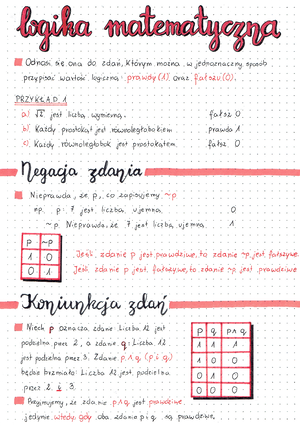 logika matematyczna
Odnosi się ona do zdań, którym można w jednoznaczny sposób
przypisać wartość logiczną: prawdy (1) oraz fałszu (0).
PRZYKŁAD 1
a) √2 jest liczbą wymierną. fałsz 0
b) Każdy prostokąt jest równoległobokiem prawda 1
c) Każdy równoległobok jest prostokątem. fałsz 0
Negacja zdania
Nieprawda, że p, co zapisujemy ~p
np. p: 7 jest liczbą ujemną. 0
~p: Nieprawda, że 7 jest liczbą ujemną. 1
p ~p
1 0
0 1
Jeśli zdanie p jest prawdziwe, to zdanie ~p jest fałszywe.
Jeśli zdanie p jest fałszywe, to zdanie ~p jest prawdziwe
Koniunkcja zdań
Niech p oznacza zdanie: Liczba 12 jest
podzielna przez 2, a zdanie q: Liczba 12
jest podzielna przez 3. Zdanie p ∧ q (p i q)
będzie brzmiało: Liczba 12 jest podzielna
przez 2 i 3.
p q p∧q
1 1 1
1 0 0
0 1 0
0 0 0
Przyjmujemy, że zdanie p∧q jest prawdziwe
jedynie wtedy, gdy oba zdania p i q są prawdziwe.